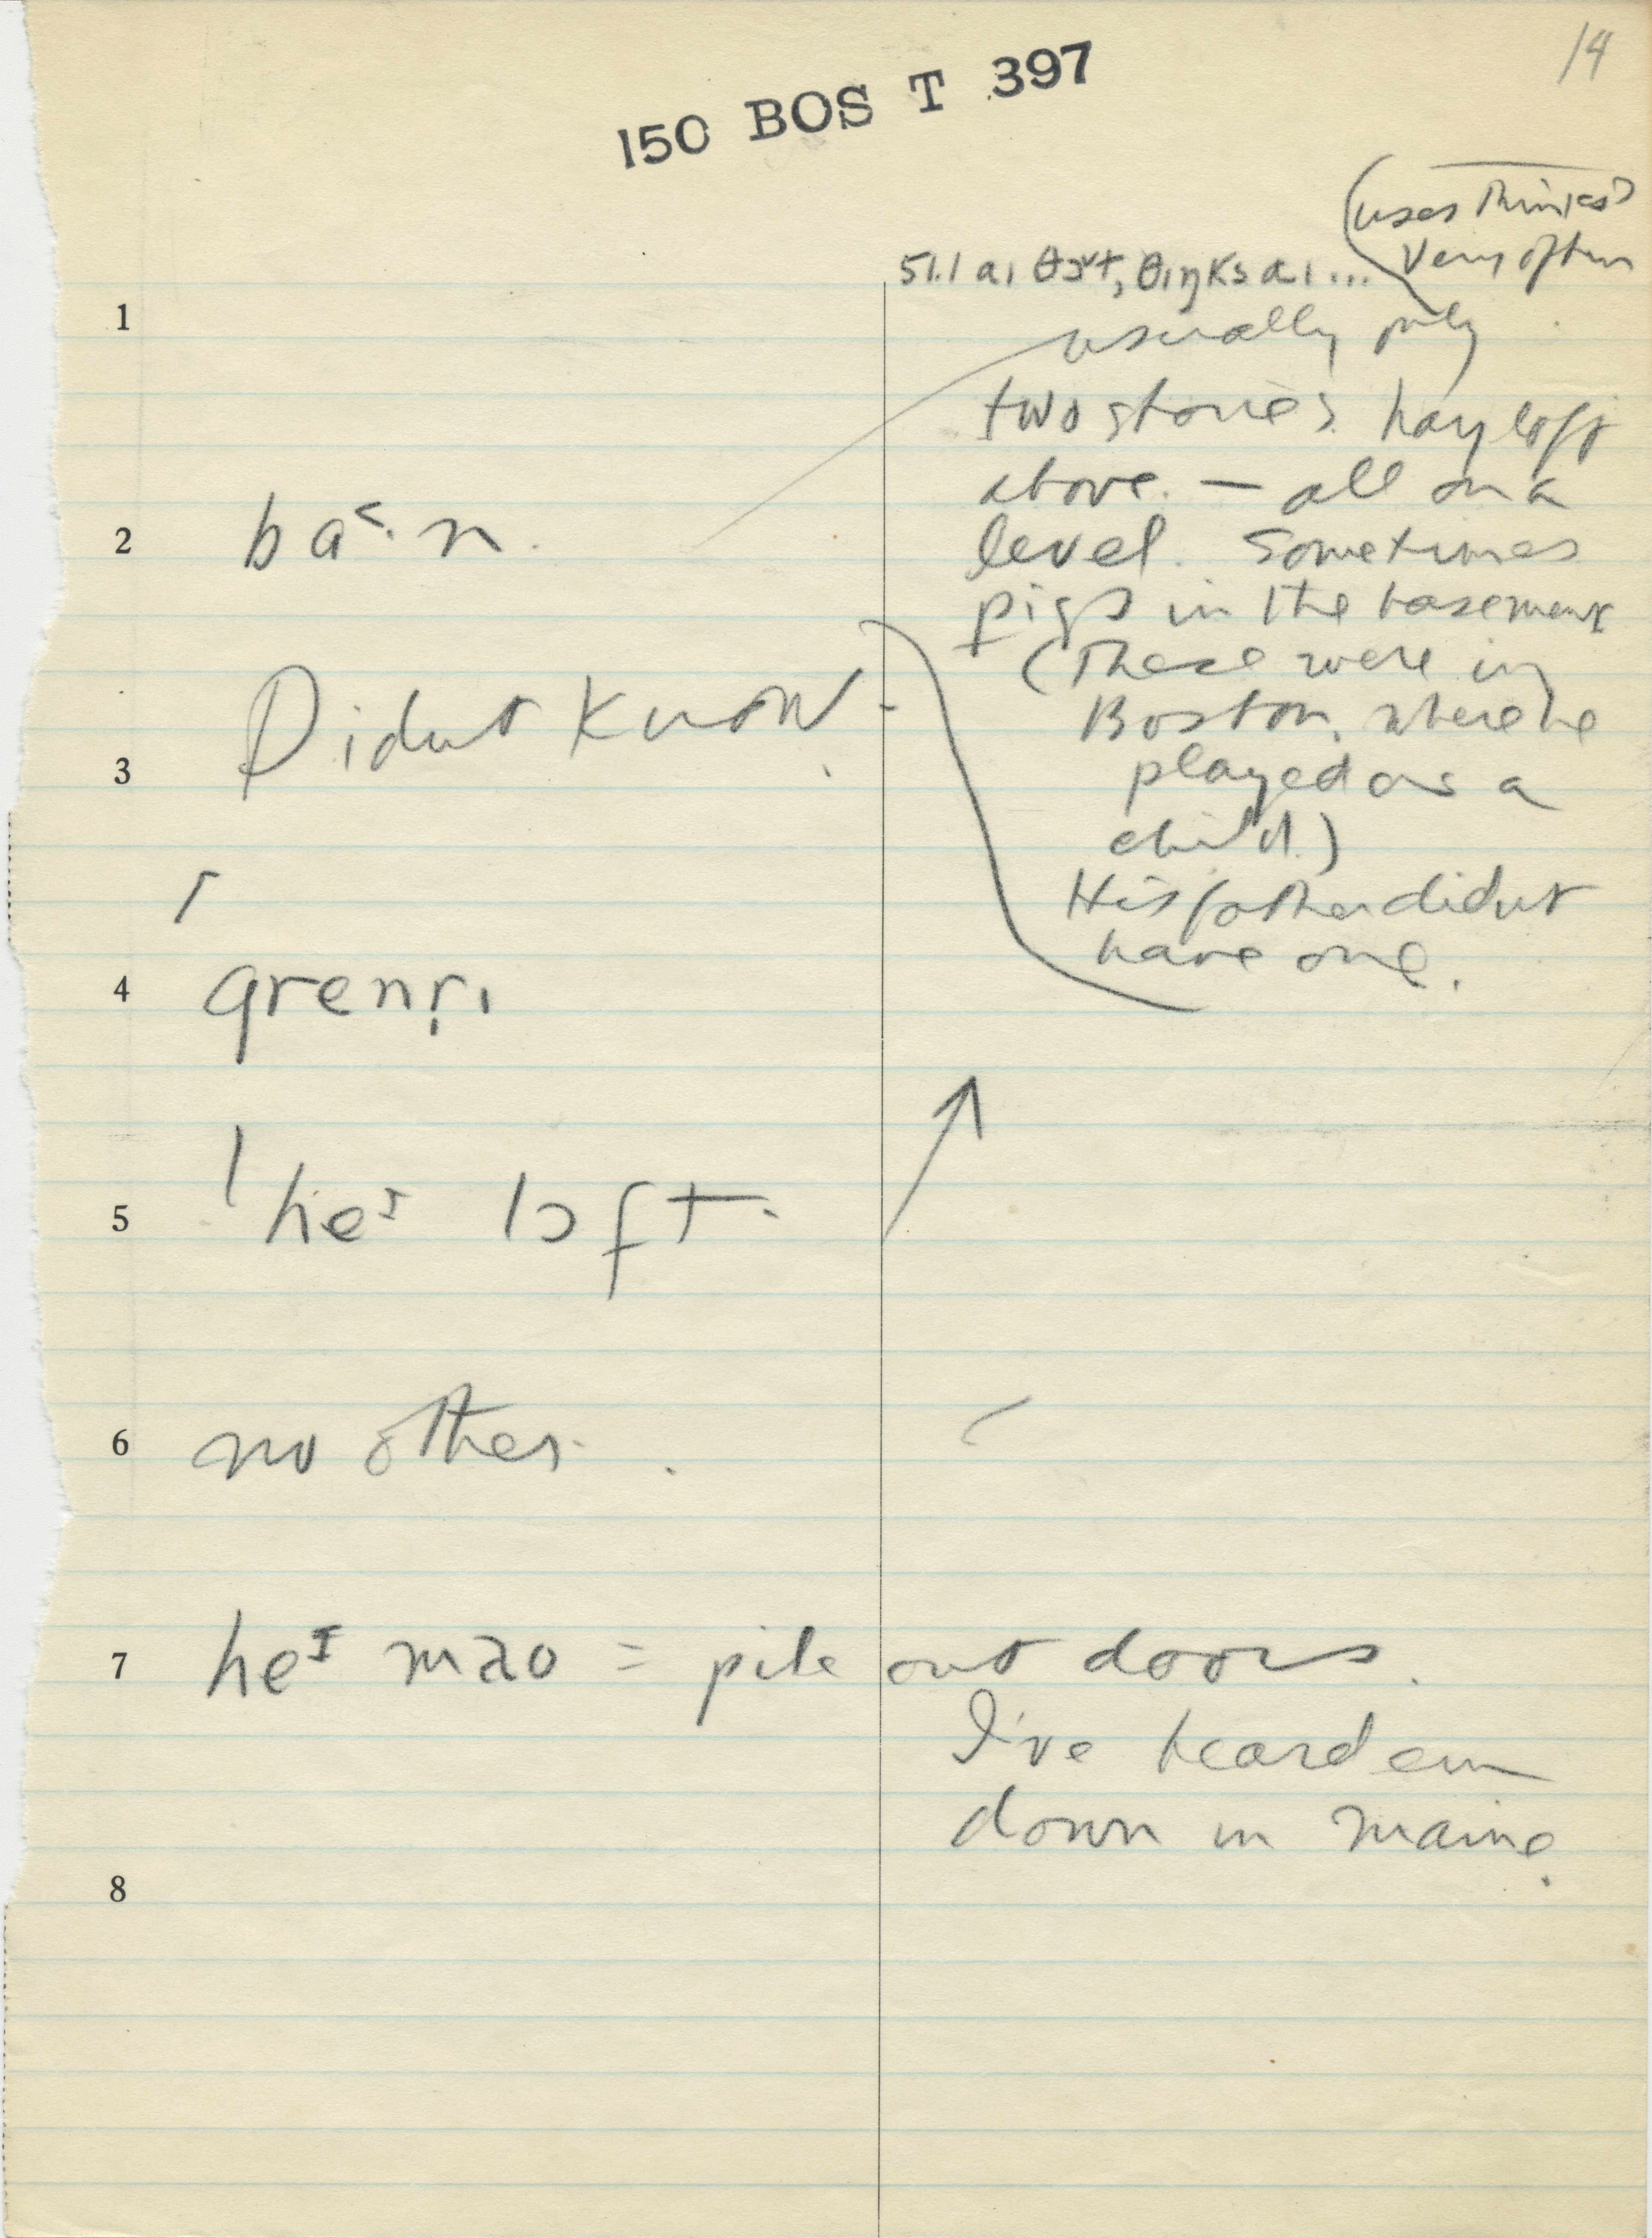 14
150 BOS T 397
(uses thinks?
very often
51.1 aɪ θɔˑt, θɪŋks aɪ ...
1
usually only
two stories. hay loft
above. — all on a
2 ba˂·n.
level. Sometimes
pigs in the basement
(These were in
Boston, where he
played as a
child.)
His father didnt
have one.
3 Didnt know.
4 grenrɪ
5 he loft.
6 no other.
7 heᴵ mao = pile out doors.
I've heard em
down in maine.
8